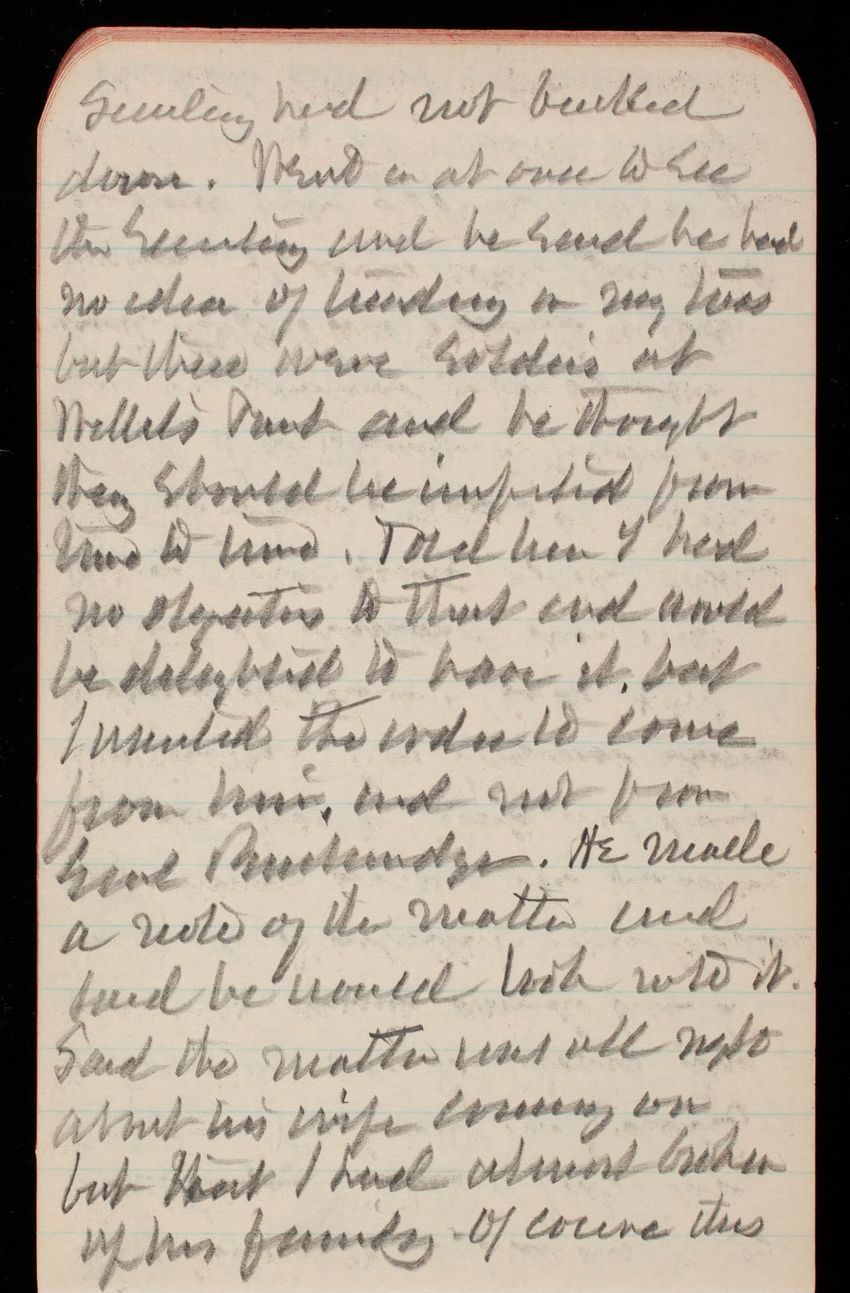 Secretary had not backed
down. Went in at once to see
the Secretary and he said he had
no idea of treading on my toes
but there were soldiers at
Willets Point and he thought
they should be inspected from
time to time. Told him I had
no objection to that and would
be delighted to have it, but
I wanted the order to come
from him, and not from
Genl Breckenridge. He made
a note of the matter and
said he would look into it.
Said the matter was all right
about his wife coming on
but that I had almost broken
up his family. Of course this